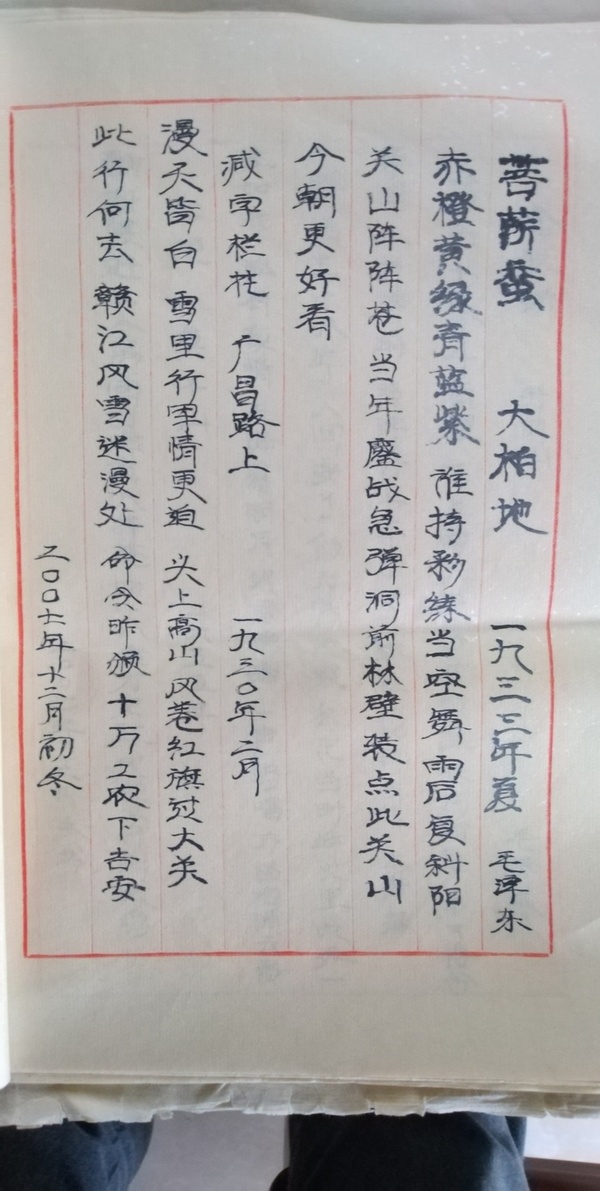 菩萨蛮 大柏地 一九三三年夏 毛泽东
赤橙黄绿青蓝紫 谁持彩练当空舞 雨后复斜阳
关山阵阵苍 当年鏖战急 弹洞前林壁 装点此关山
今朝更好看
减字栏花 广昌路上 一九三〇年二月
漫天皆白 雪里行军情更迫 头上高山 风卷红旗过大关
此行何去 赣江风雪迷漫处 命令昨颁 十万工农下吉安
二〇〇七年十二月初冬